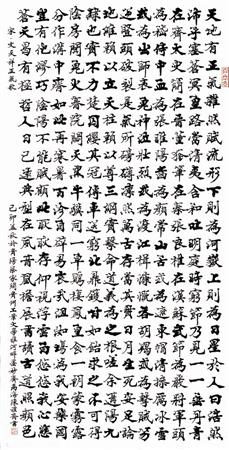 天地有正氣雜然賦流形下則為河嶽上則為日星於人曰浩然
沛乎塞蒼冥皇路當清夷含和吐明庭時窮節乃見一一垂丹青
在齊太史簡在晉董狐筆在秦張良椎在漢蘇武節為嚴將軍頭
為嵇侍中血為張睢陽齒為顏常山舌或為遼東帽清操厲冰雪
或為出師表鬼神泣壯烈或為渡江楫慷慨吞胡羯或為擊賊笏
逆豎頭破裂是氣所磅礴凜烈萬古存當其貫日月生死安足論
地維賴以立天柱賴以尊三綱實繫命道義為之根嗟予遘陽九
隸也實不力楚囚纓其冠傳車送窮北鼎鑊甘如飴求之不可得
陰房闃鬼火春院閟天黑牛驥同一皂雞棲鳳凰食一朝蒙霧露
分作溝中瘠如此再寒暑百沴自辟易哀哉沮洳場為我安樂國
豈有他繆巧陰陽不能賊顧此耿耿存仰視浮雲白悠悠我心悲
蒼天曷有極哲人日已遠典型在夙昔風簷展書讀古道照顏色
宋文天祥正氣歌
己卯